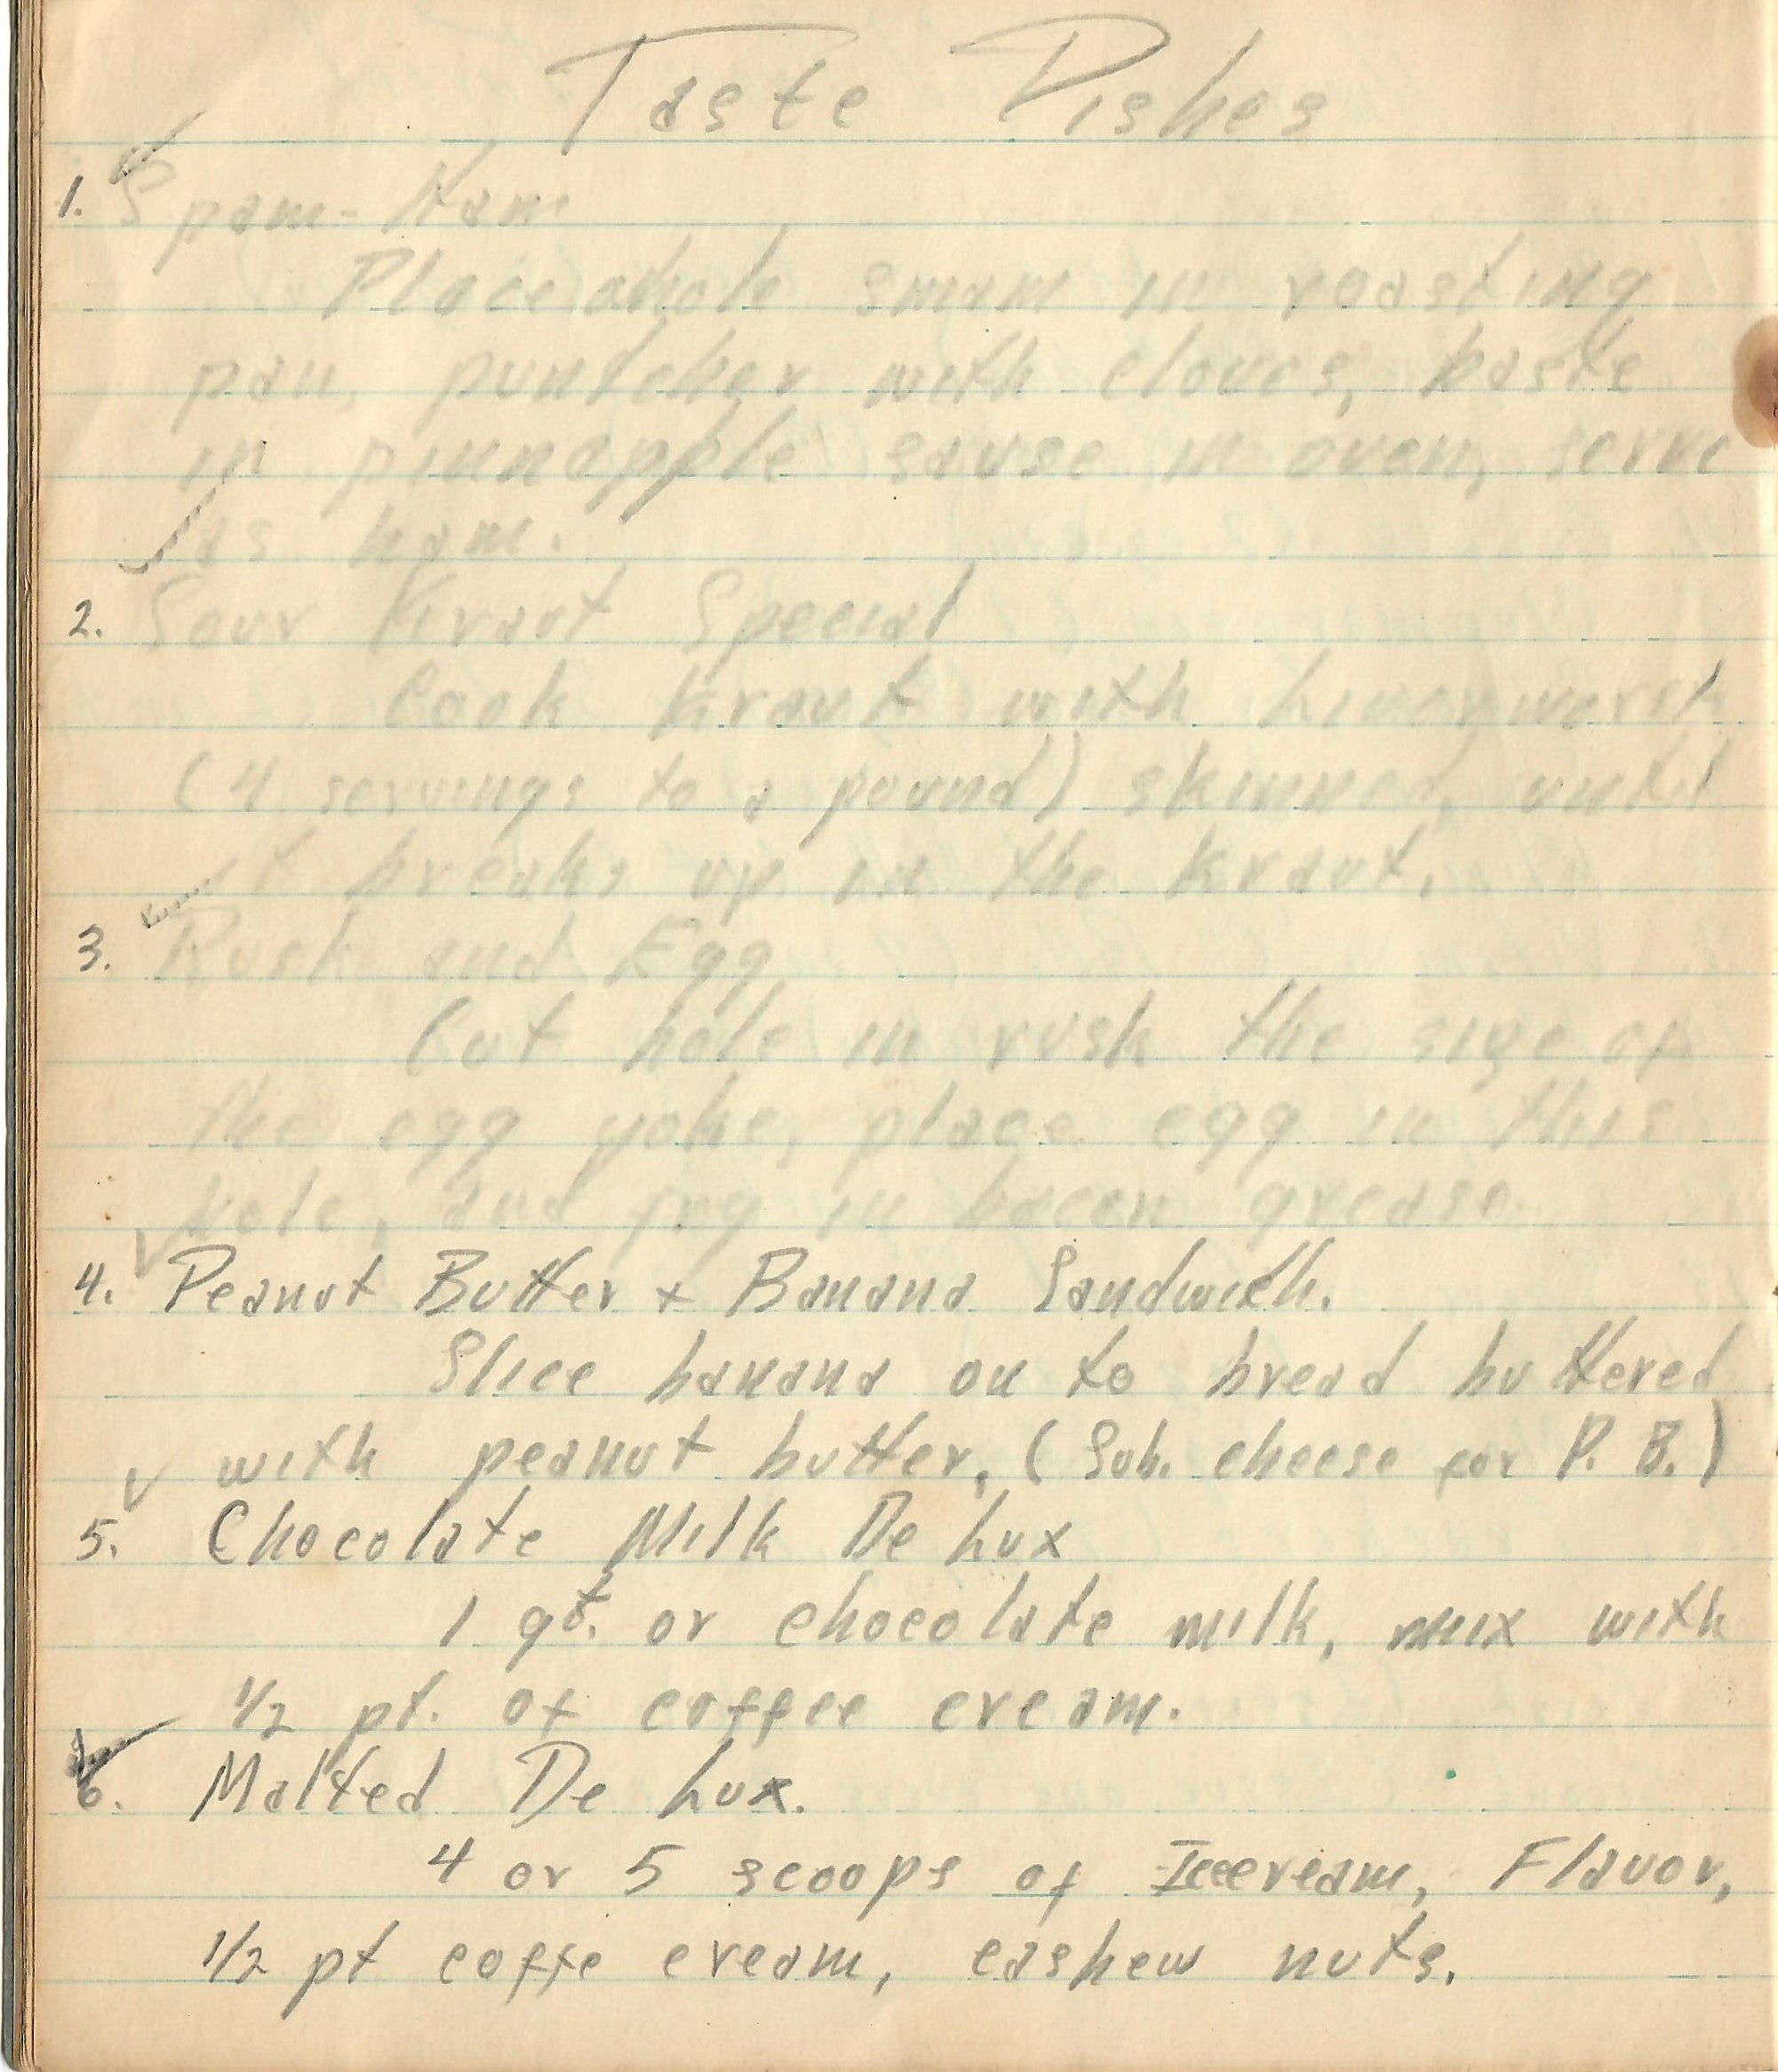 Taste Dishes
1. Spam-Ham
Place whole smam in roasting
pan, puntcher with cloves, baste
in pinnapple sause in oven, serve
as ham.
2. Sour Kraut Special
Cook Kraut with Liverwurst
(4 servings to a pound) skinned, until
it breaks up in the Kraut.
3. Rusk and Egg
Cut hole in rusk the size of
the egg yoke, place egg in this
hole, and fry in bacon grease.
4. Peanut Butter + Banana Sandwich.
Slice banana on to bread buttered
with peanut butter, (Sub. cheese for P. B.)
5. Chocolate Milk De Lux
1 qt. or chocolate milk, mix with
1/2 pt. of coffee cream.
6. Malted De Lux.
4 or 5 scoops of Icecream, Flavor,
1/2 pt coffe cream, cashew nuts.